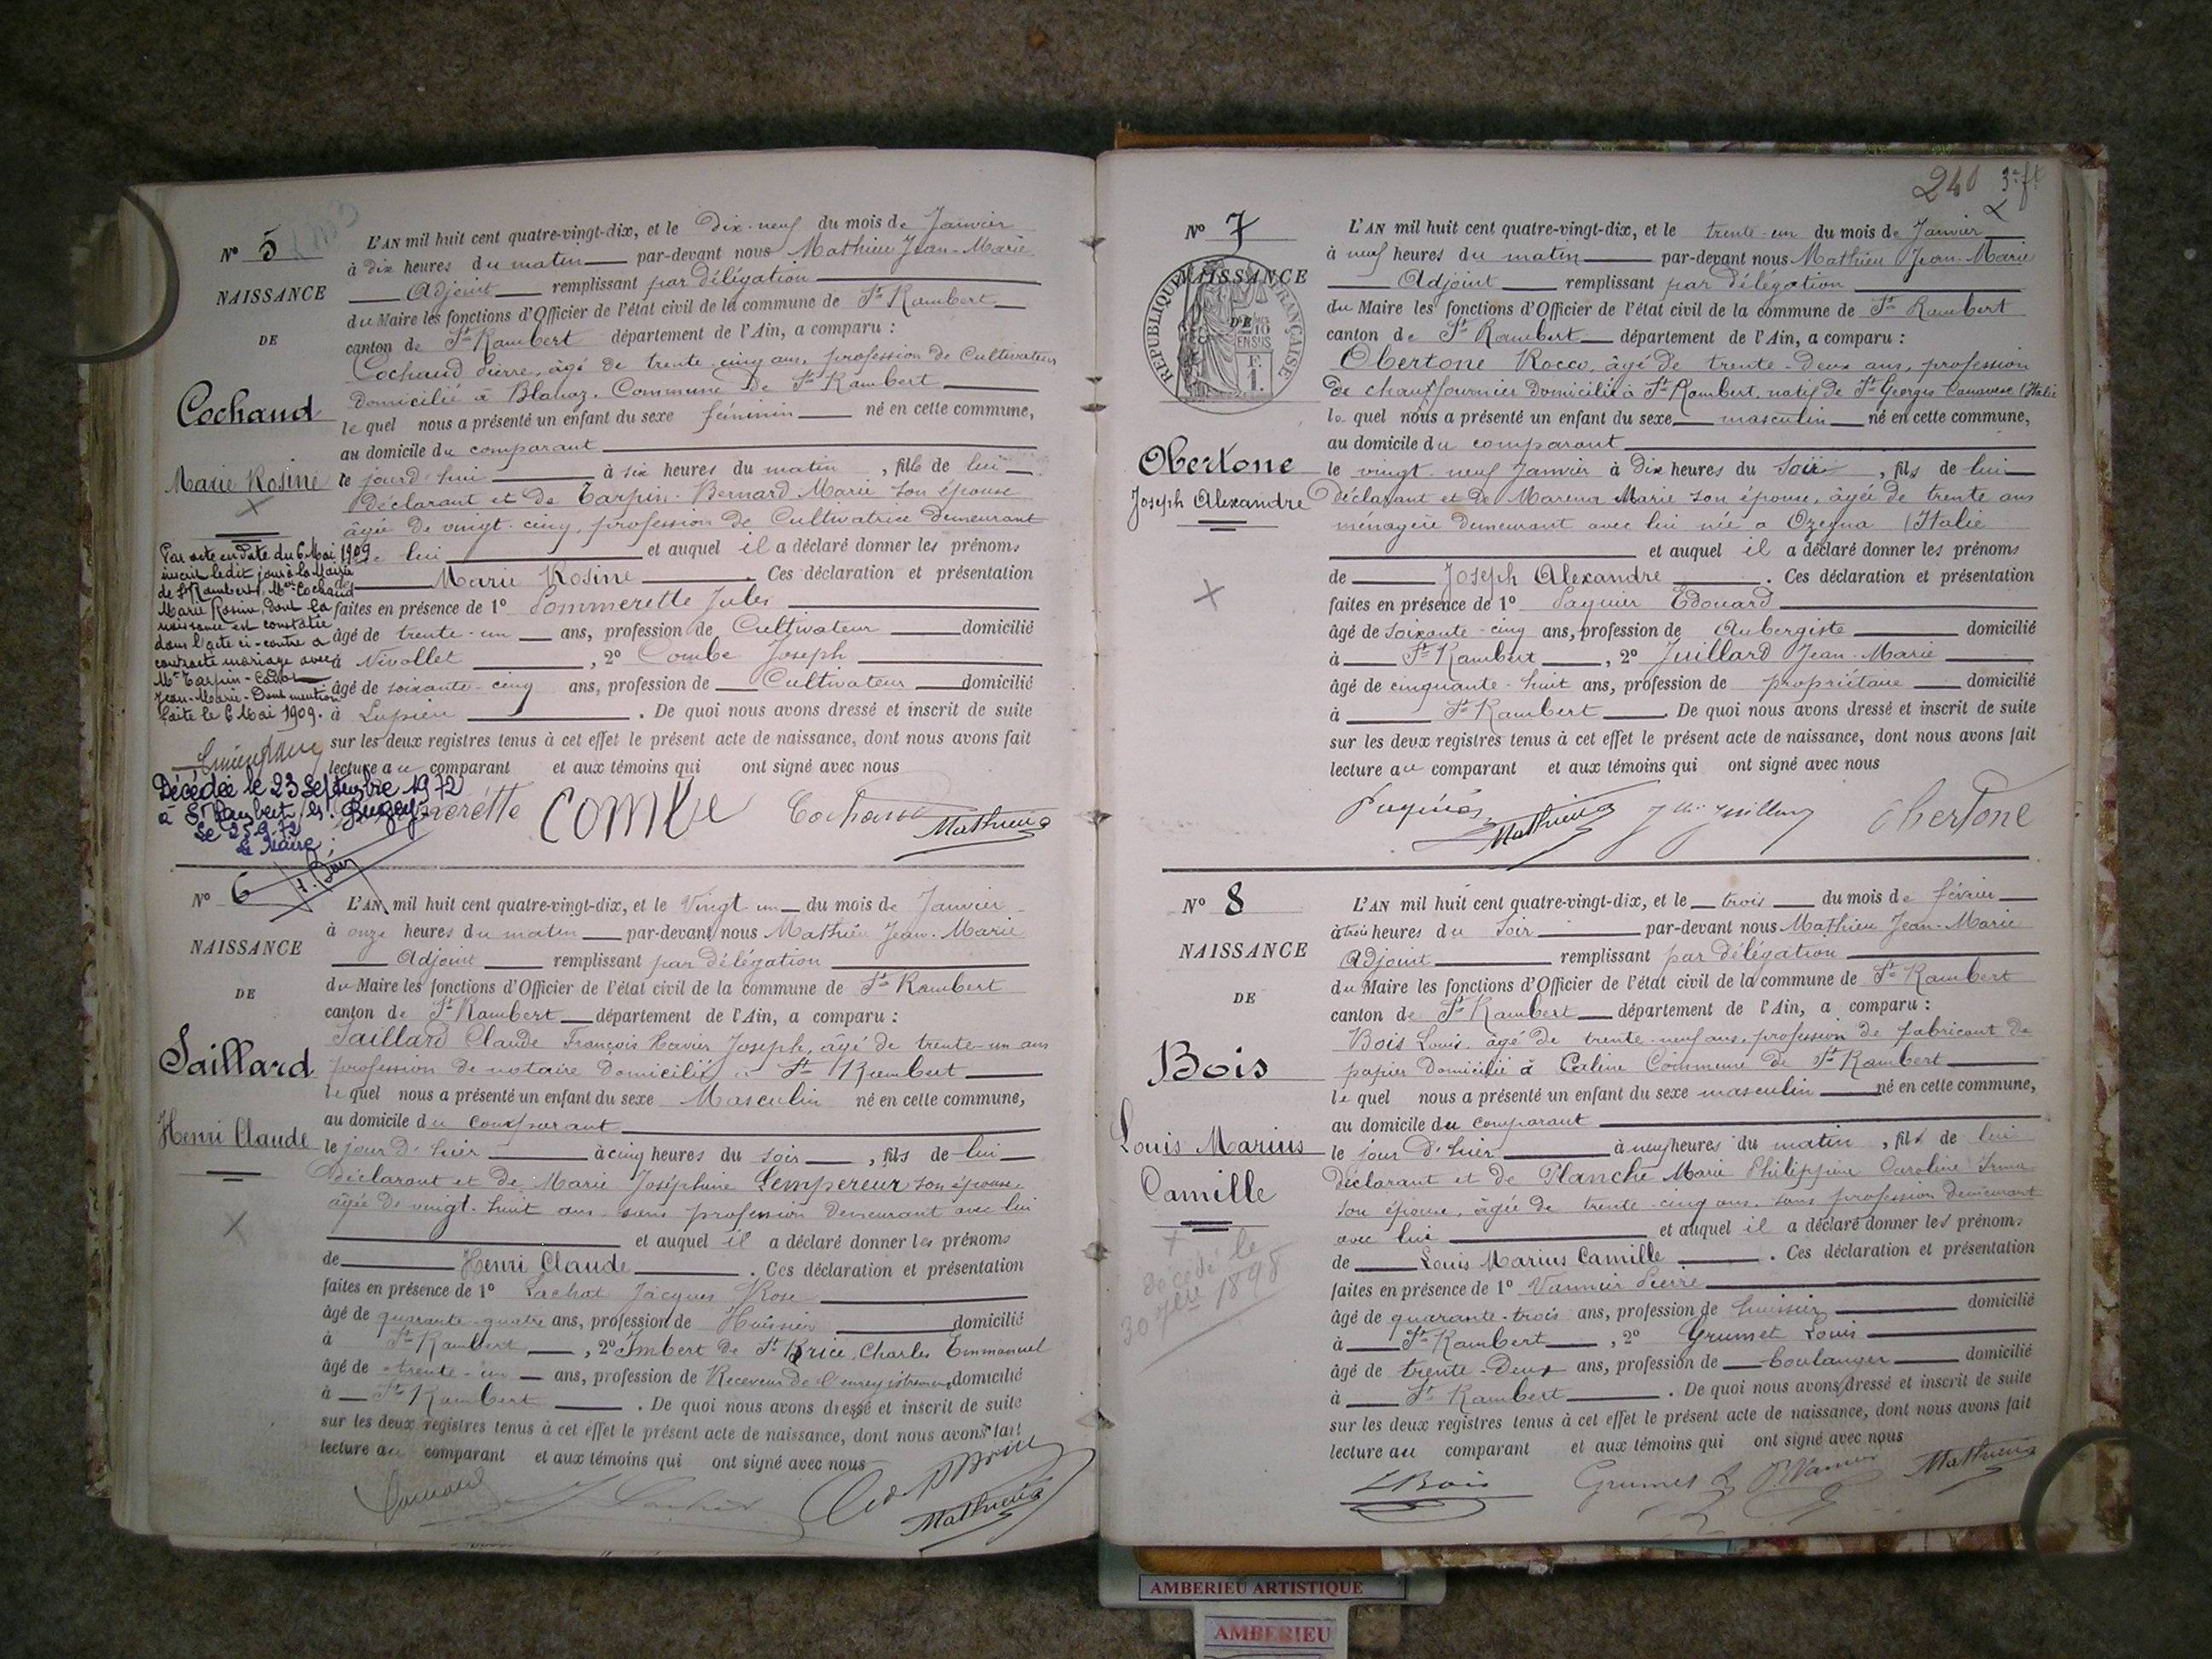 N° 5
NAISSANCE
DE
Cochaud
Marie Rosine
L'AN mil huit cent quatre-vingt-dix, et le dix-neuf du mois de Janvier
à dix heures du matin par-devant nous Mathieu Jean-Marie
Adjoint remplissant par délégation
du Maire les fonctions d'Officier de l'état civil de la commune de St Rambert
canton de St Rambert département de l'Ain, a comparu :
Cochaud Pierre, âgé de trente-cinq ans, profession de Cultivateur
domicilié à Blanaz, Commune de St Rambert
lequel nous a présenté un enfant du sexe féminin né en cette commune,
au domicile du comparant
le jourd'hui à six heures du matin, fille de lui
déclarant et de Tarpin-Bernard Marie son épouse
âgée de vingt-cinq, profession de Cultivatrice demeurant
lui et auquel il a déclaré donner les prénoms
Marie Rosine. Ces déclaration et présentation
faites en présence de 1° Pommerette Jules
âgé de trente-un ans, profession de Cultivateur domicilié
à Nivollet, 2° Combe Joseph
âgé de soixante-cinq ans, profession de Cultivateur domicilié
à Lupieu. De quoi nous avons dressé et inscrit de suite
sur les deux registres tenus à cet effet le présent acte de naissance, dont nous avons fait
lecture au comparant et aux témoins qui ont signé avec nous
Par acte en date du 6 Mai 1909
inscrit ledit jour à la Mairie
de St Rambert, Melle Cochaud
Marie Rosine, dont la
naissance est constatée
dans l'acte ci-contre a
contracté mariage avec
Mr Tarpin-
Jean-Marie. Dont mention
faite le 6 Mai 1909.
Décédée le 23 Septembre 1972
à St Rambert en Bugey
Le 25.9.72
Le Maire,
Combe Cochaud Mathieu
N° 6
NAISSANCE
DE
Saillard
Henri Claude
L'AN mil huit cent quatre-vingt-dix, et le Vingt un du mois de Janvier
à onze heures du matin par-devant nous Mathieu Jean-Marie
Adjoint remplissant par délégation
du Maire les fonctions d'Officier de l'état civil de la commune de St Rambert
canton de St Rambert département de l'Ain, a comparu :
Saillard Claude François Xavier Joseph, âgé de trente-un ans
profession de notaire domicilié à St Rambert
lequel nous a présenté un enfant du sexe Masculin né en cette commune,
au domicile du comparant
le jour d'hier à cinq heures du soir, fils de lui
déclarant et de Marie Joséphine Lempereur son épouse
âgée de vingt-huit ans sans profession demeurant avec lui
et auquel il a déclaré donner les prénoms
de Henri Claude. Ces déclaration et présentation
faites en présence de 1° Lachat Jacques Rose
âgé de quarante-quatre ans, profession de Huissier domicilié
à St Rambert, 2° Imbert de St Brice, Charles Emmanuel
âgé de trente-un ans, profession de Receveur de l'enregistrement domicilié
à St Rambert. De quoi nous avons dressé et inscrit de suite
sur les deux registres tenus à cet effet le présent acte de naissance, dont nous avons fait
lecture au comparant et aux témoins qui ont signé avec nous
Mathieu
240 3e ft
N° 7
NAISSANCE
DE
REPUBLIQUE FRANÇAISE
Obertone
Joseph Alexandre
L'AN mil huit cent quatre-vingt-dix, et le trente-un du mois de Janvier
à neuf heures du matin par-devant nous Mathieu Jean-Marie
Adjoint remplissant par délégation
du Maire les fonctions d'Officier de l'état civil de la commune de St Rambert
canton de St Rambert département de l'Ain, a comparu :
Obertone Rocco, âgé de trente-deux ans, profession
de chauffournier domicilié à St Rambert, natif de St Georges Canavese (Italie
lequel nous a présenté un enfant du sexe masculin né en cette commune,
au domicile du comparant
le vingt-neuf Janvier à dix heures du soir, fils de lui
déclarant et de Marena Marie son épouse, âgée de trente ans
ménagère demeurant avec lui née à Ozegna (Italie
et auquel il a déclaré donner les prénoms
de Joseph Alexandre. Ces déclaration et présentation
faites en présence de 1° Paquier Edouard
âgé de soixante-cinq ans, profession de Aubergiste domicilié
à St Rambert, 2° Juillard Jean-Marie
âgé de cinquante-huit ans, profession de propriétaire domicilié
à St Rambert. De quoi nous avons dressé et inscrit de suite
sur les deux registres tenus à cet effet le présent acte de naissance, dont nous avons fait
lecture au comparant et aux témoins qui ont signé avec nous
Mathieu Juillard Obertone
N° 8
NAISSANCE
DE
Bois
Louis Marius
Camille
décédé le
30 7bre 1898
L'AN mil huit cent quatre-vingt-dix, et le trois du mois de février
à trois heures du soir par-devant nous Mathieu Jean-Marie
Adjoint remplissant par délégation
du Maire les fonctions d'Officier de l'état civil de la commune de St Rambert
canton de St Rambert département de l'Ain, a comparu :
Bois Louis, âgé de trente-neuf ans, profession de fabricant de
papier domicilié à Commune de St Rambert
lequel nous a présenté un enfant du sexe masculin né en cette commune,
au domicile du comparant
le jour d'hier à neuf heures du matin, fils de lui
déclarant et de Planche Marie Philippine Caroline Irma
son épouse, âgée de trente-cinq ans, sans profession demeurant
avec lui et auquel il a déclaré donner les prénoms
de Louis Marius Camille. Ces déclaration et présentation
faites en présence de 1° Vannier Pierre
âgé de quarante-trois ans, profession de huissier domicilié
à St Rambert, 2° Grumet Louis
âgé de trente-deux ans, profession de boulanger domicilié
à St Rambert. De quoi nous avons dressé et inscrit de suite
sur les deux registres tenus à cet effet le présent acte de naissance, dont nous avons fait
lecture au comparant et aux témoins qui ont signé avec nous
LBois Grumet L P. Vannier Mathieu
AMBERIEU ARTISTIQUE
AMBERIEU